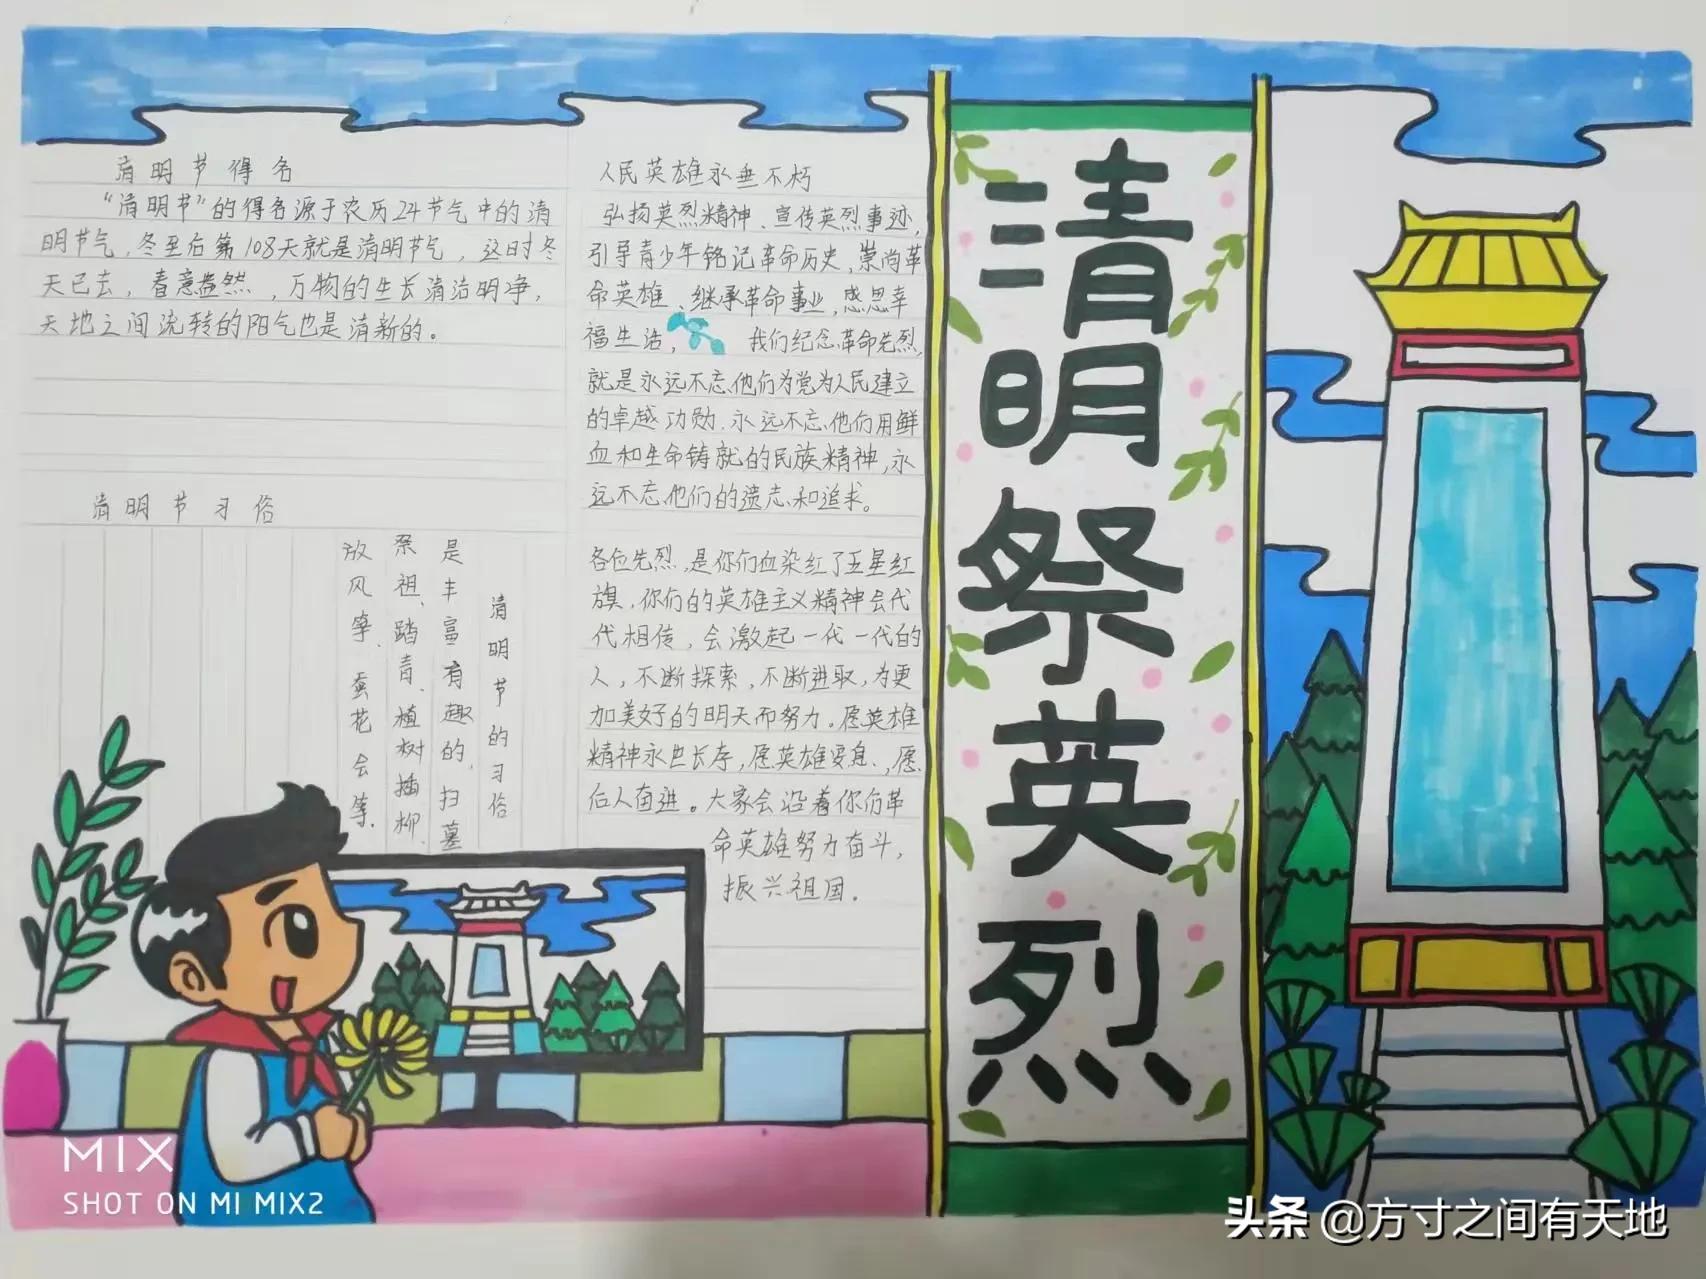 清明节得名
“清明节”的得名源于农历24节气中的清
明节气，冬至后第108天就是清明节气，这时冬
天已去，春意盎然，万物的生长清洁明净，
天地之间流转的阳气也是清新的。
清明节习俗
清明节的习俗
是丰富有趣的，扫墓
祭祖、踏青、植树插柳、
放风筝、蚕花会等。
人民英雄永垂不朽
弘扬英烈精神、宣传英烈事迹，
引导青少年铭记革命历史，崇尚革
命英雄、继承革命事业，感恩幸
福生活，我们纪念革命先烈，
就是永远不忘他们为党为人民建立
的卓越功勋、永远不忘他们用鲜
血和生命铸就的民族精神，永
远不忘他们的遗志和追求。
各位先烈，是你们血染红了五星红
旗，你们的英雄主义精神会代
代相传，会激起一代一代的
人，不断探索，不断进取，为更
加美好的明天而努力。愿英雄
精神永世长存，愿英雄安息，愿
后人奋进。大家会沿着你们革
命英雄努力奋斗，
振兴祖国.
清明祭英烈
MIX
SHOT ON MI MIX2
头条 @方寸之间有天地